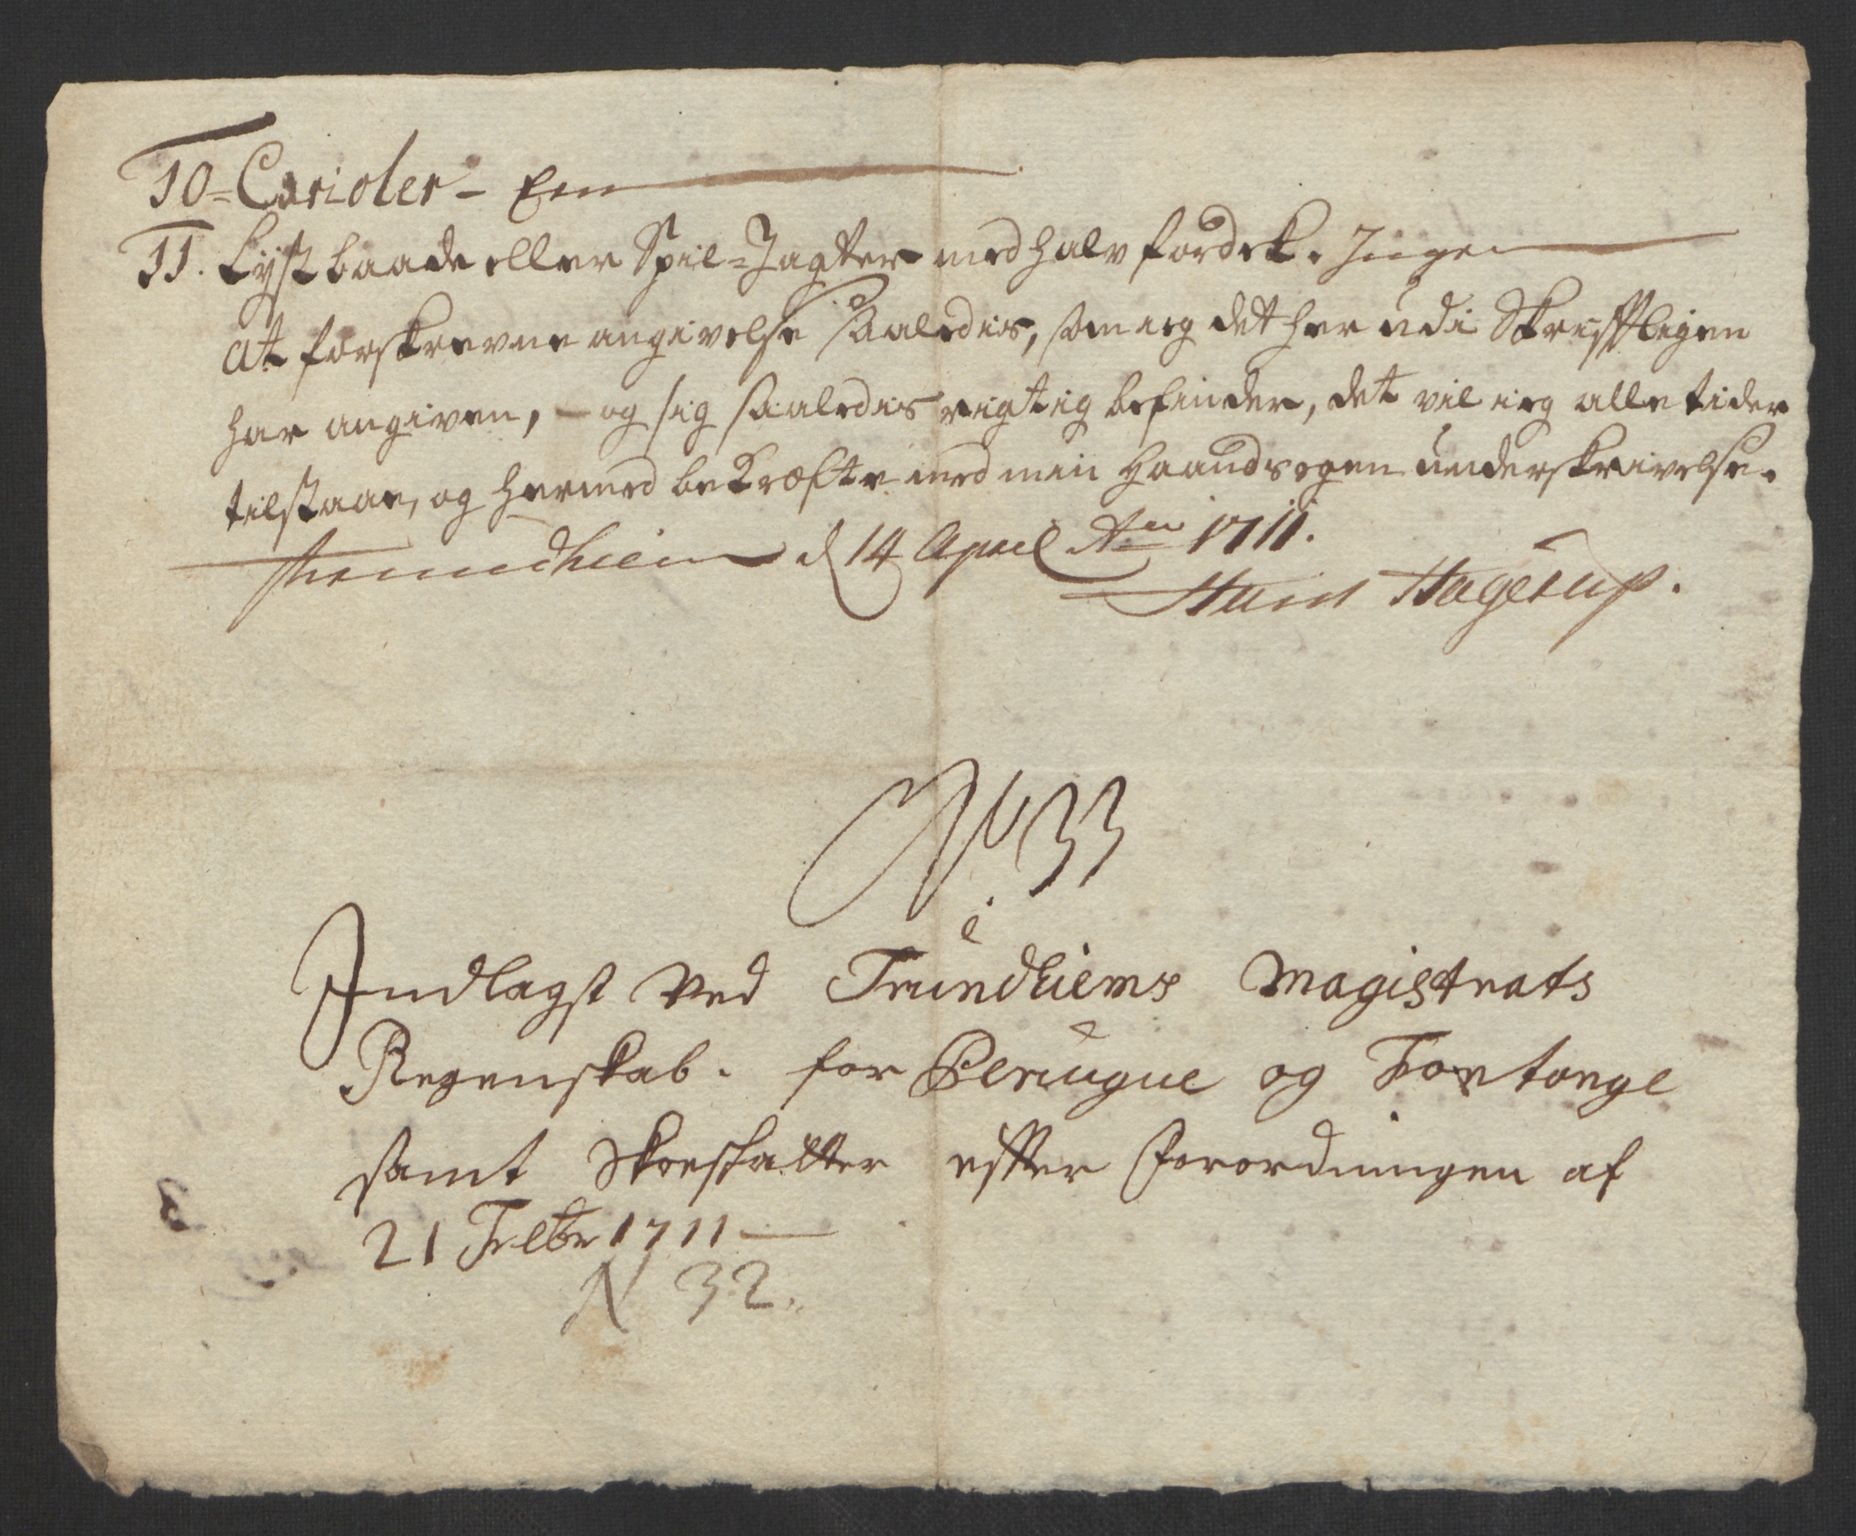 10 - Carioler - Een
11. Lystbaade eller Spil-Jagter med halv fordek. Ingen
at forskrevne angivelse saaledis, som ieg det her udi Skrifftligen
har angiven, - og sig saaledis rigtig befinder, det vil ieg alle tider
tilstaae, og hermed bekræfte med min haands egen underskrivelse.
Trundhiem d 14 April Ao 1711.
Hans Hagerup.
No 33
Indlagst ved Trundhiems Magistrats
Regenskab. for Peruque og Fontange
samt Skoeskatter effter Forordningen af
21 Febr 1711
N 32.